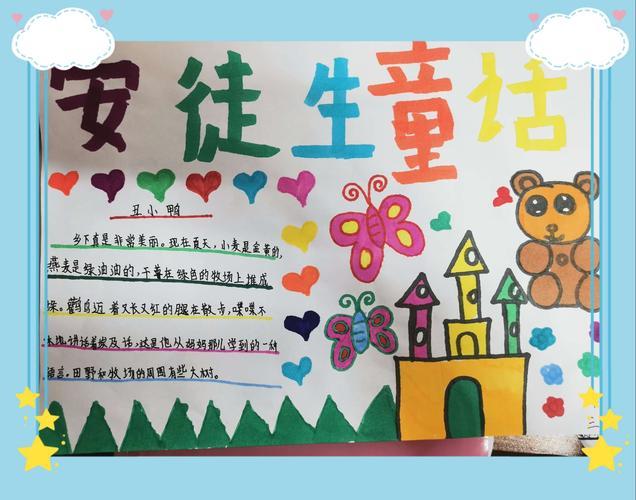 安徒生童话
丑小鸭
乡下真是非常美丽。现在夏天,小麦是金黄的,
燕麦是绿油油的,干草在绿色的牧场上堆成
垛。鹳鸟迈着又长又红的腿在散步,喋喋不
休地讲话着埃及话,这是他从妈妈那儿学到的一种
语言。田野和牧场的周围有些大树。
三